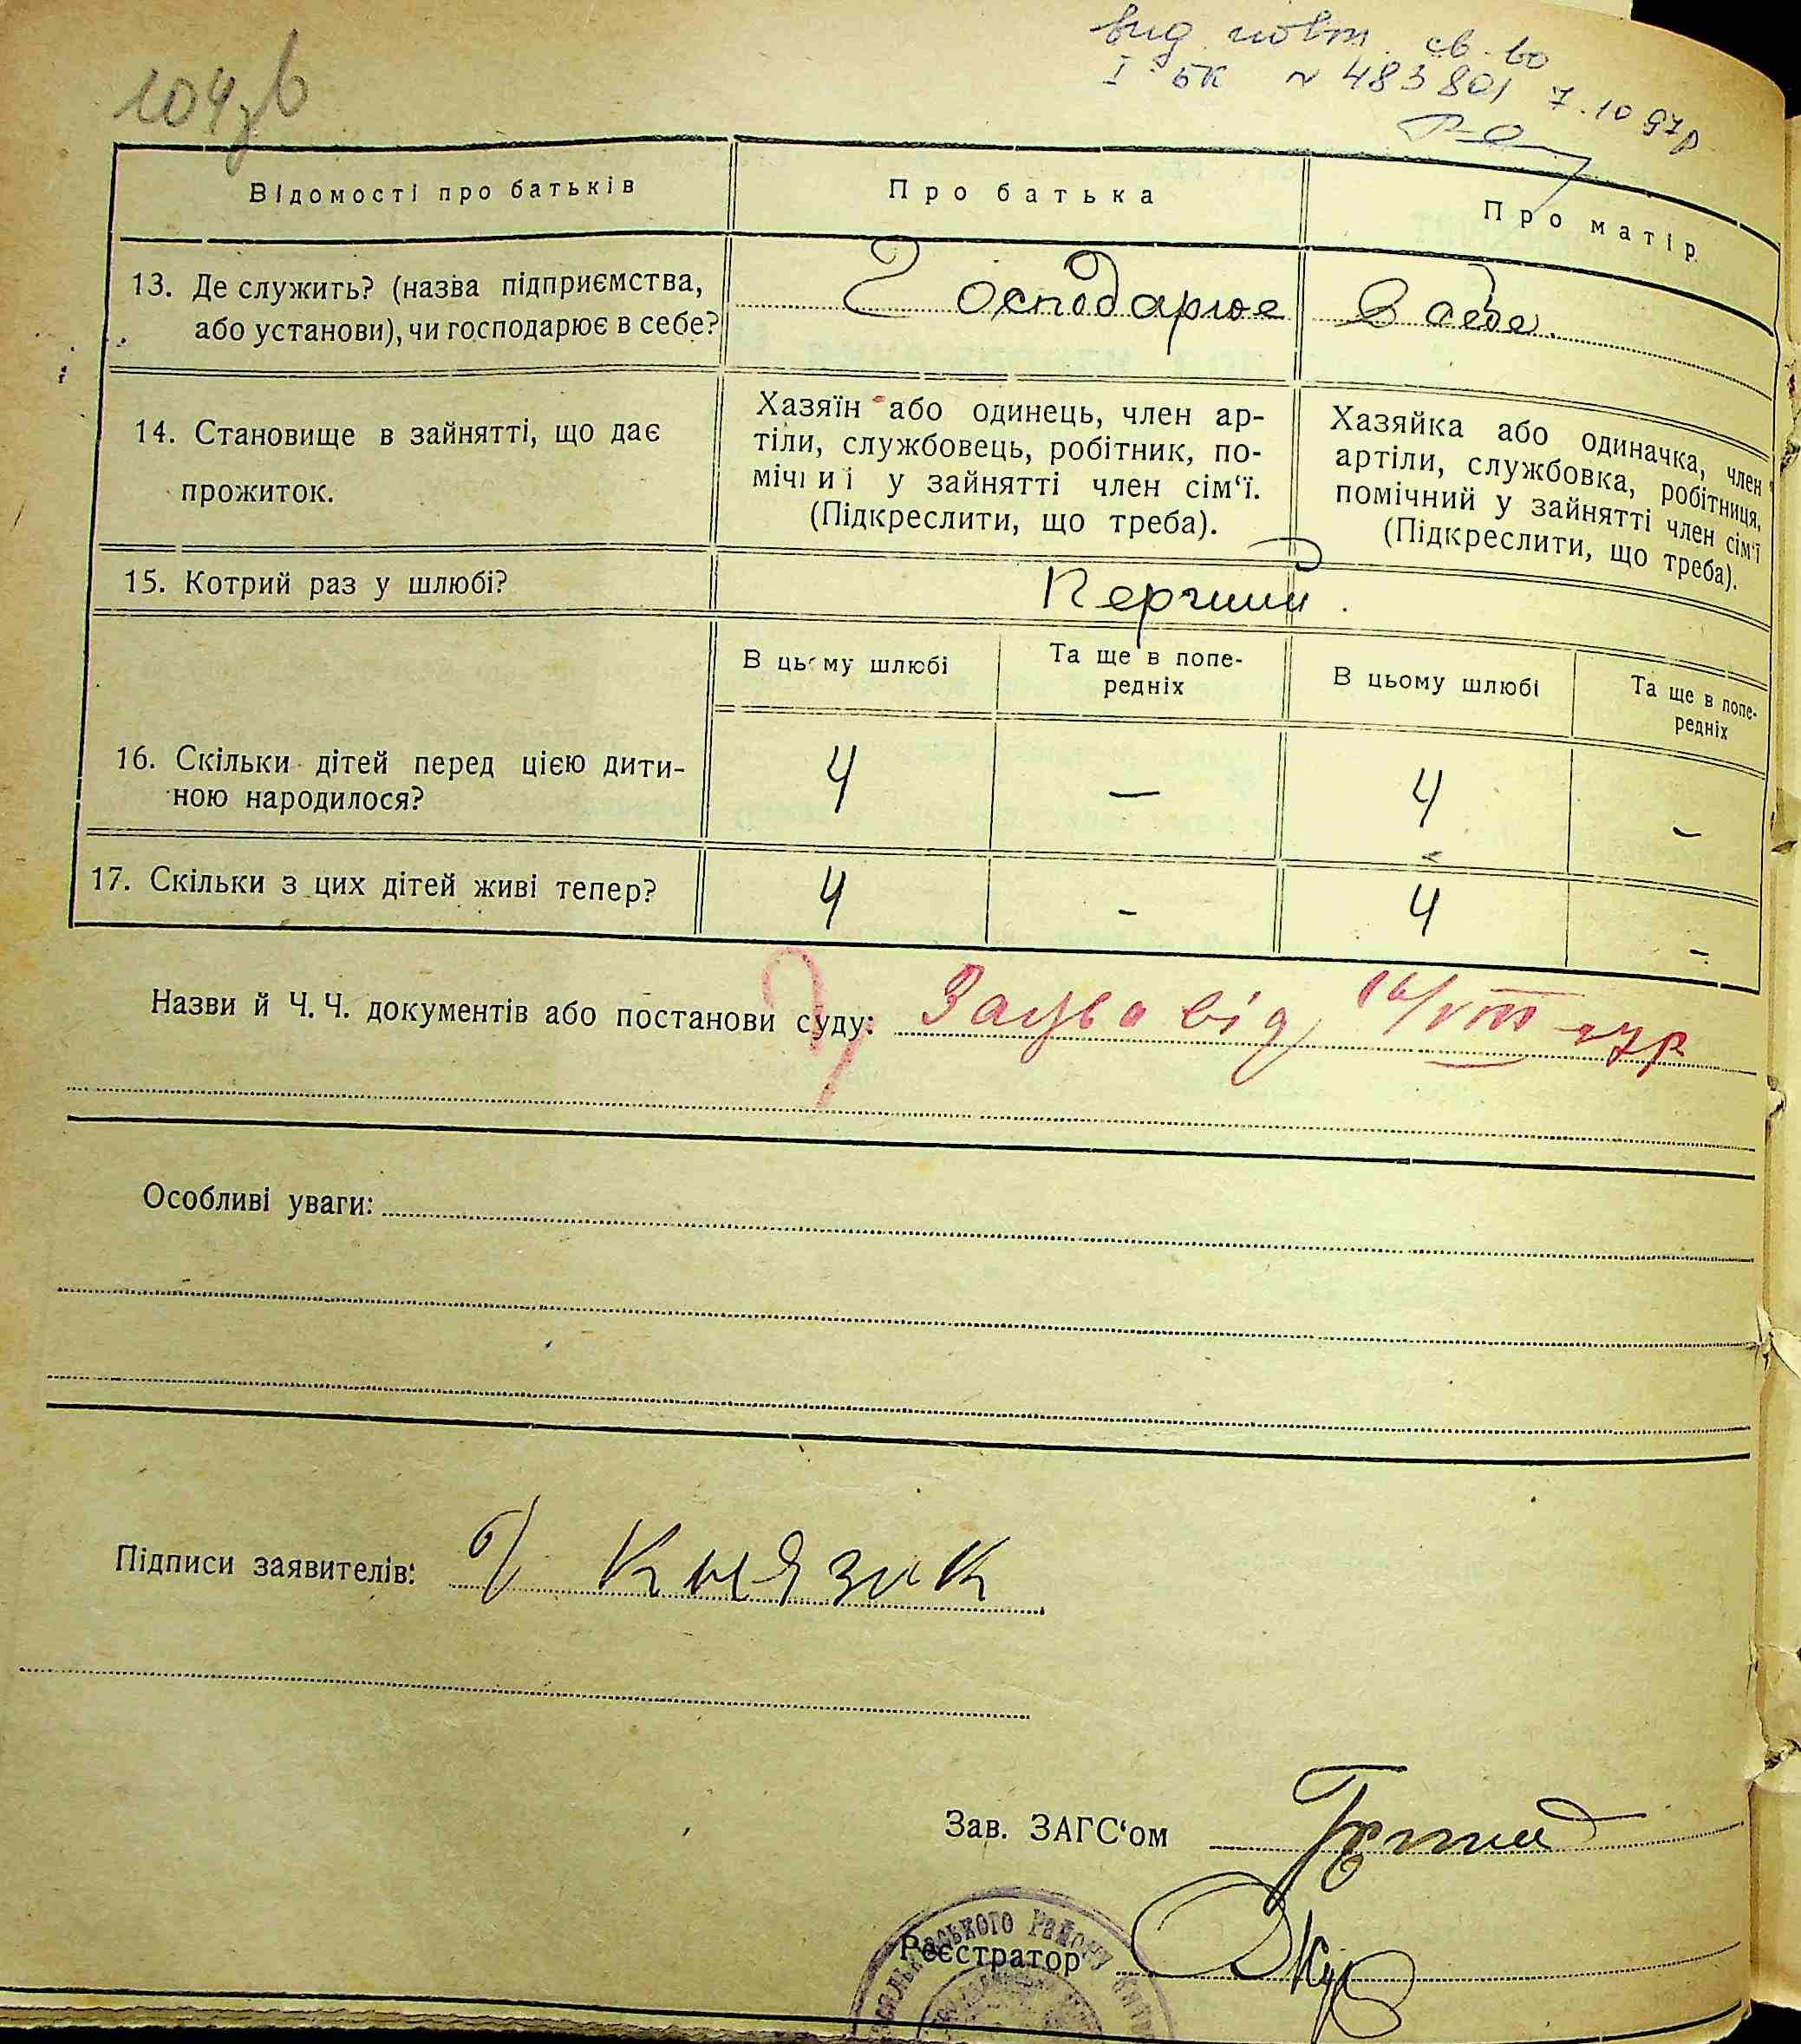 104 зв
вид. повт. св-во
I БК № 483801 7.10 97р
Відомості про батьків
Про батька
Про матір
13. Де служить? (назва підприємства,
або установи), чи господарює в себе?
Господарює в себе.
14. Становище в зайнятті, що дає
прожиток.
Хазяїн або одинець, член ар-
тіли, службовець, робітник, по-
мічний у зайнятті член сім‘ї.
(Підкреслити, що треба).
Хазяйка або одиначка, член
артіли, службовка, робітниця,
помічний у зайнятті член сім‘ї
(Підкреслити, що треба).
15. Котрий раз у шлюбі?
Перший.
В цьому шлюбі
Та ще в попе-
редніх
В цьому шлюбі
Та ще в попе-
редніх
16. Скільки дітей перед цією дити-
ною народилося?
4 — 4 –
17. Скільки з цих дітей живі тепер?
4 - 4 -
Назви й Ч. Ч. документів або постанови суду: Заява від 16/VIII 27р
Особливі уваги:
Підписи заявителів: б/ Князик
Зав. ЗАГС‘ом
Реєстратор
ського Району